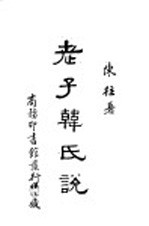 陳柱著
老子韓氏說
商務印書館叢行